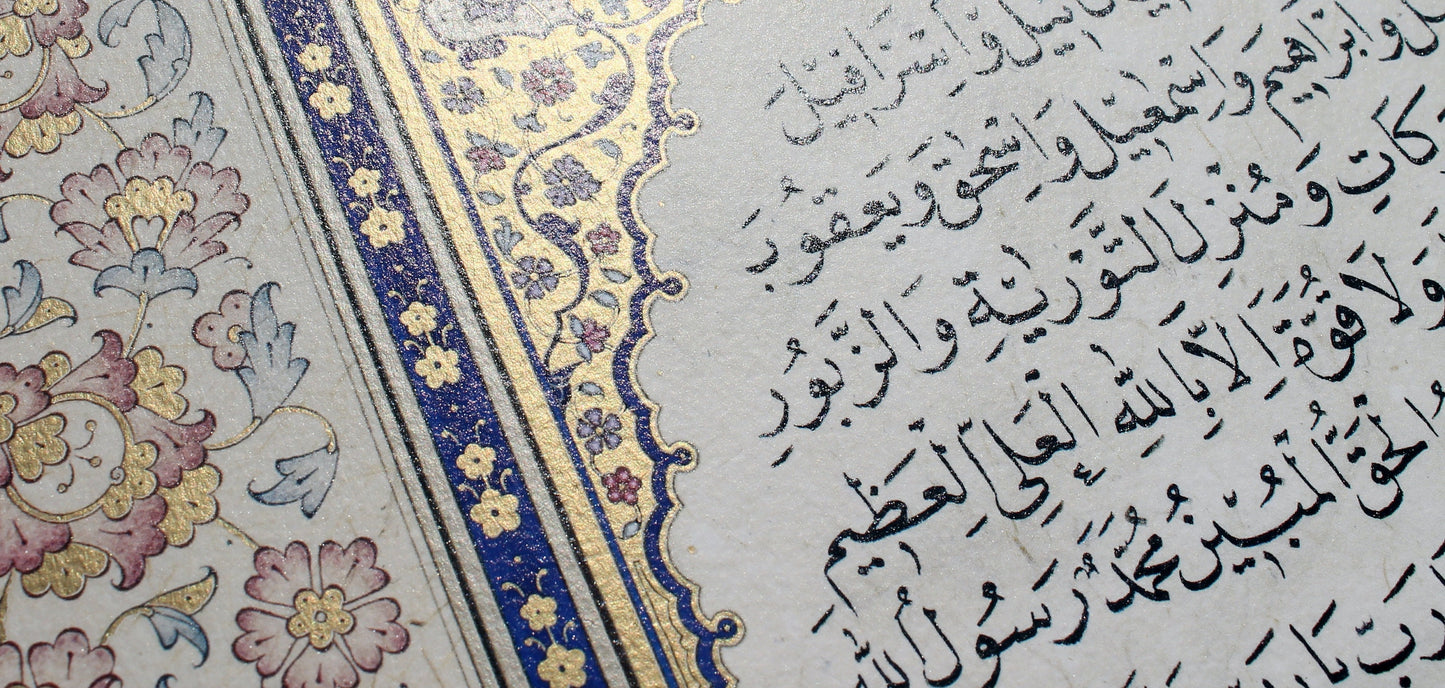 وَاِسْرَافِيْلَ
وَاِبْرَاهِيْمَ وَاِسْمٰعِيْلَ وَاِسْحٰقَ وَيَعْقُوْبَ
وَمُنْزِلَ التَّوْرٰيةِ وَالزَّبُوْرِ
وَلَا قُوَّةَ اِلَّا بِاللهِ الْعَلِىِّ الْعَظِيْمِ
الْحَقُّ الْمُبِيْنُ مُحَمَّدٌ رَسُوْلُ اللهِ